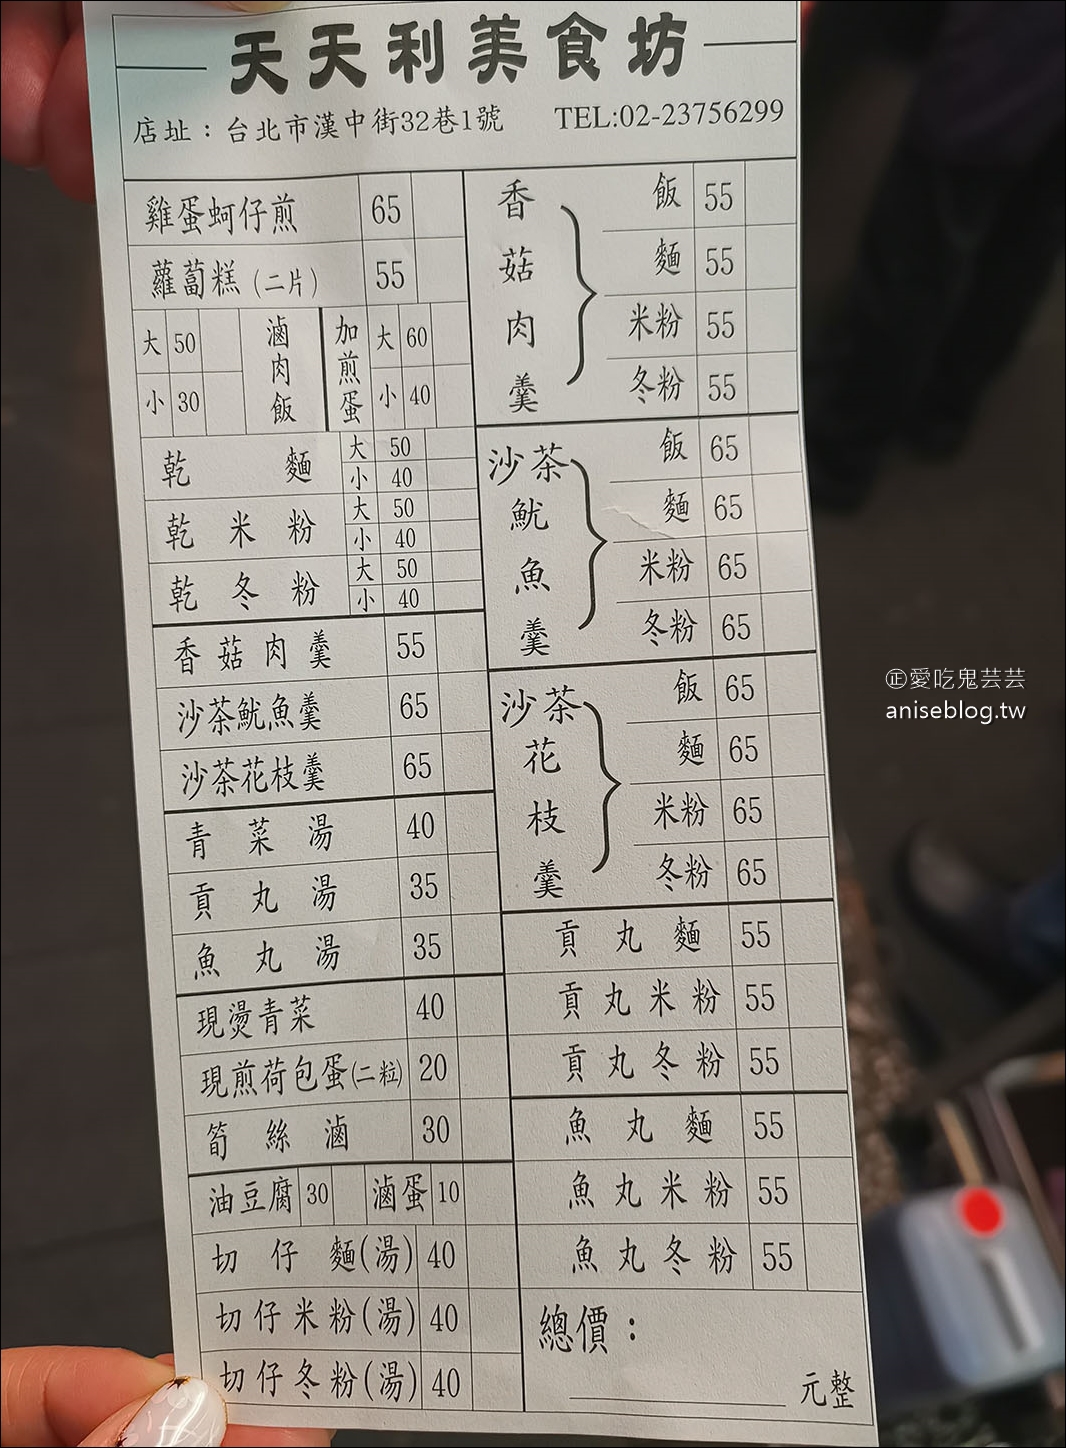 天天利美食坊
店址：台北市漢中街32巷1號 TEL:02-23756299
雞蛋蚵仔煎 65
蘿蔔糕(二片) 55
滷肉飯 大 50 小 30
加煎蛋 大 60 小 40
乾麵 大 50 小 40
乾米粉 大 50 小 40
乾冬粉 大 50 小 40
香菇肉羹 55
沙茶魷魚羹 65
沙茶花枝羹 65
青菜湯 40
貢丸湯 35
魚丸湯 35
現燙青菜 40
現煎荷包蛋(二粒) 20
筍絲滷 30
油豆腐 30 滷蛋 10
切仔麵(湯) 40
切仔米粉(湯) 40
切仔冬粉(湯) 40
香菇肉羹
飯 55
麵 55
米粉 55
冬粉 55
沙茶魷魚羹
飯 65
麵 65
米粉 65
冬粉 65
沙茶花枝羹
飯 65
麵 65
米粉 65
冬粉 65
貢丸麵 55
貢丸米粉 55
貢丸冬粉 55
魚丸麵 55
魚丸米粉 55
魚丸冬粉 55
總價：
元整
㊣愛吃鬼芸芸
aniseblog.tw